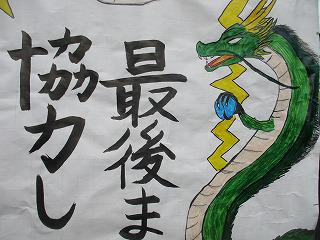 最後ま
協力し